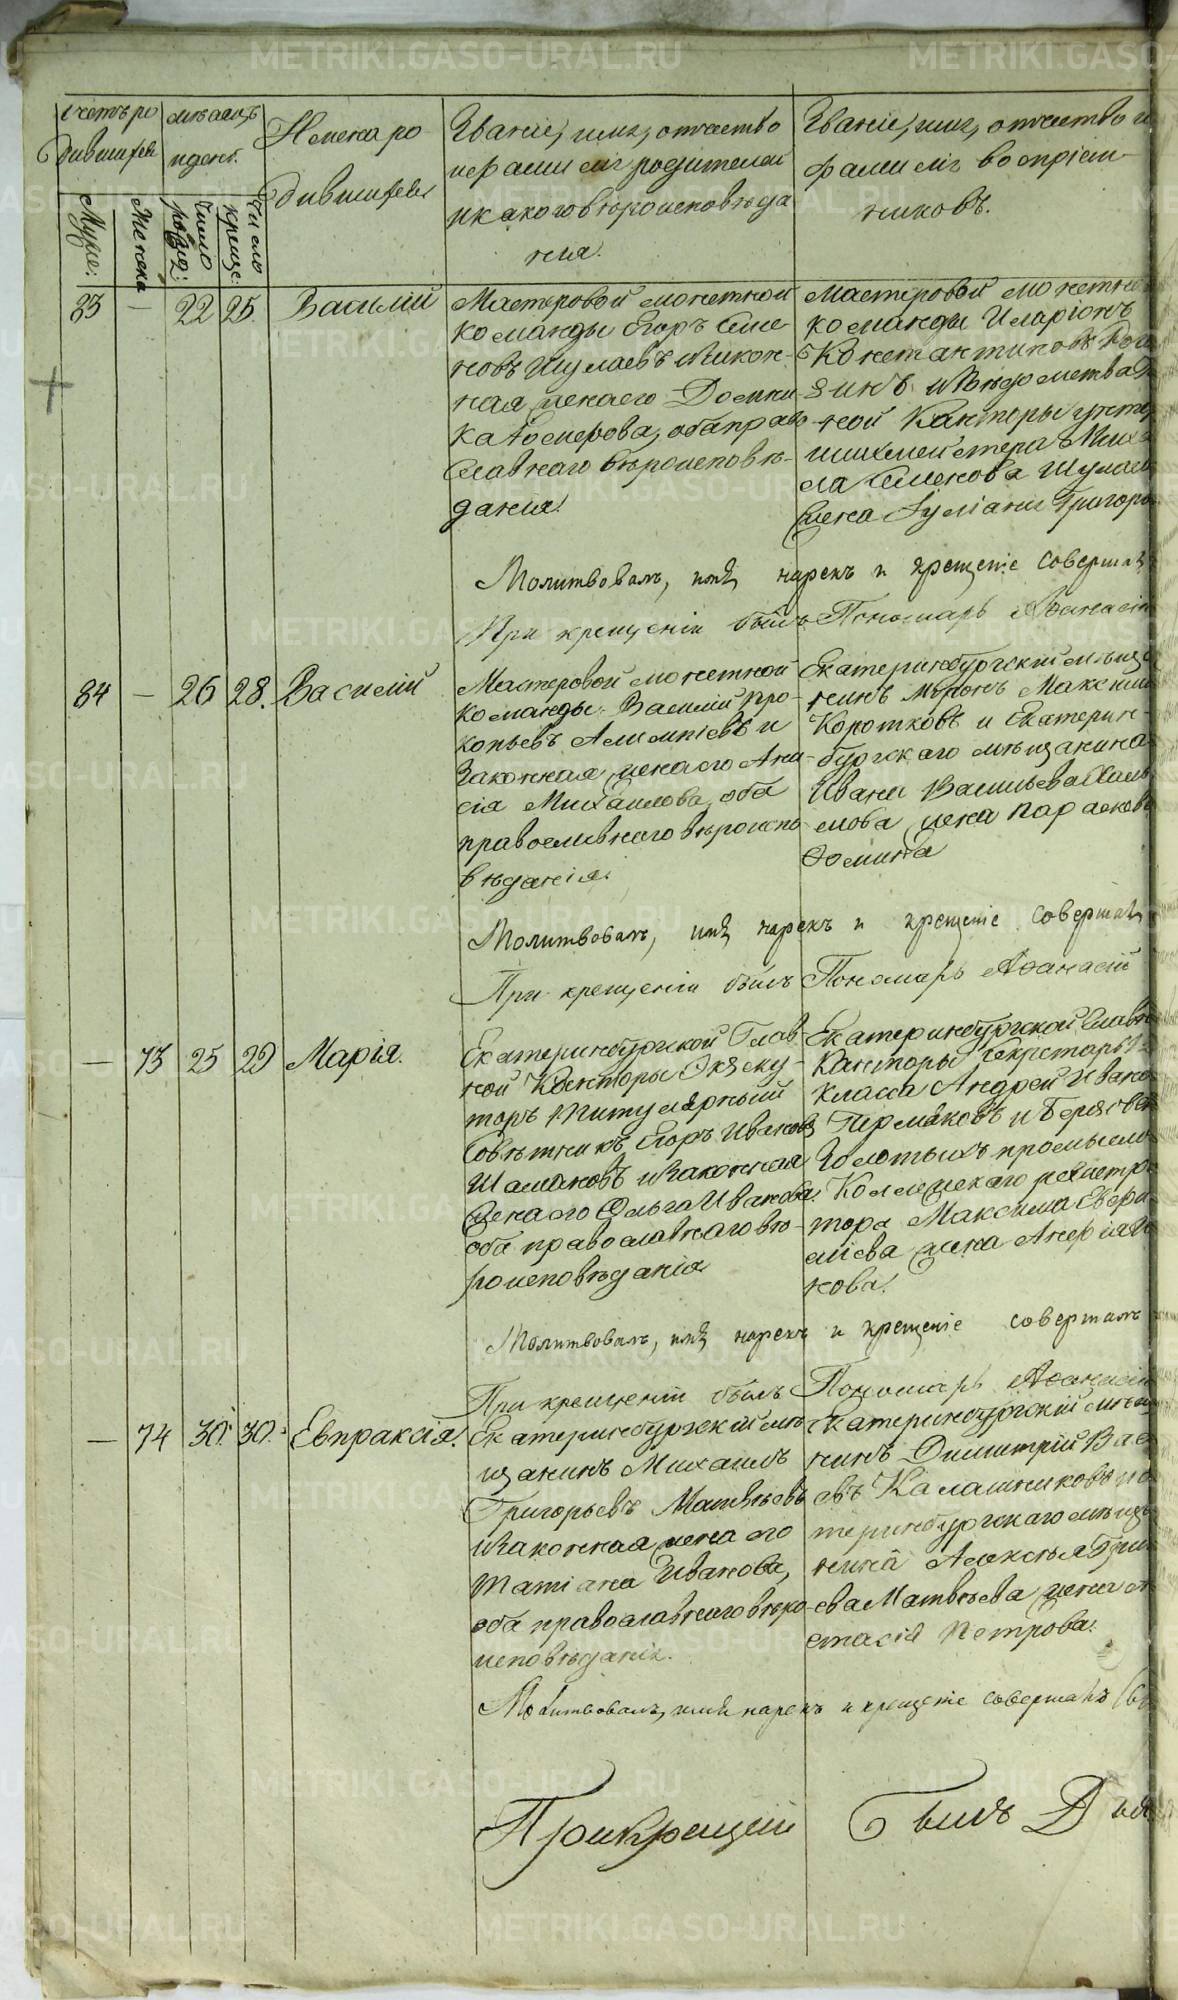 METRIKI.GASO-URAL.RU
Счетъ ро
дившихся
мѣсяцъ
и день.
Имена ро
дившихся
Званіе, имя, отчество
и фамилія родителей
и какого вѣроисповѣда
нія.
Званіе, имя, отчество и
фамилія воспріем-
никовъ.
Муже:
Женска
Число
рожд:
Число
креще:
83 — 22 25. Василій
Мастеровой монетной
команды Егоръ Семе
новъ Шулаевъ и закон-
ная жена его Домни
ка Космерова, оба право
славнаго вѣроисповѣ-
данія.
Мастеровой монетно
команды Иларіонъ
Константиновъ
зинъ и вѣдомства
ной Канторы унте
шихмейстера Миха
ла Семенова Шулае
жена Іуліанія Григорь
Молитвовалъ, имя нарекъ и крещеніе совершалъ
При крещеніи былъ Пономарь Аѳанасій
84 — 26 28. Василій
Мастеровой монетной
команды Василій Про-
копьевъ Алимпіевъ и
законная жена его Ани
сія Михаилова, оба
православнаго вѣроиспо
вѣданія.
Екатеринбургскій мѣща
нинъ Миронъ Максим
Коротковъ и Екатерин-
бургскаго мѣщанина
Ивана Васильева
мова жена Параскова
Ѳомина
Молитвовалъ, имя нарекъ и крещеніе совершалъ
При крещеніи былъ Пономарь Аѳанасій
— 73 25 29 Марія.
Екатеринбургской Глав-
ной Канторы Экзеку-
торъ Титулярный
Совѣтникъ Егоръ Ивановъ
Шамановъ и законная
жена его Ольга Иванова.
оба православнаго вѣ-
роисповѣданія
Екатеринбургской Главн
Канторы Секретарь 12
класса Андрей Ивано
Пермяковъ и Березовск
Золотыхъ промысло
Коллежскаго регистра
тора Максима Евера
жена
нова.
Молитвовалъ, имя нарекъ и крещеніе совершалъ
При крещеніи былъ Пономарь Аѳанасій
— 74 30. 30. Евпраксія.
Екатеринбургскій мѣ
щанинъ Михаилъ
Григорьевъ Матвѣевъ
и законная жена его
Татіана Иванова,
оба православнаго вѣро-
исповѣданія.
Екатеринбургскій мѣща
нинъ Димитрій Вас
евъ Калашниковъ и
теринбургскаго мѣща
нина Алексѣя Гри
ева Матвѣева жена
стасія Петрова.
Молитвовалъ, имя нарекъ и крещеніе совершалъ
При крещеніи былъ Дья